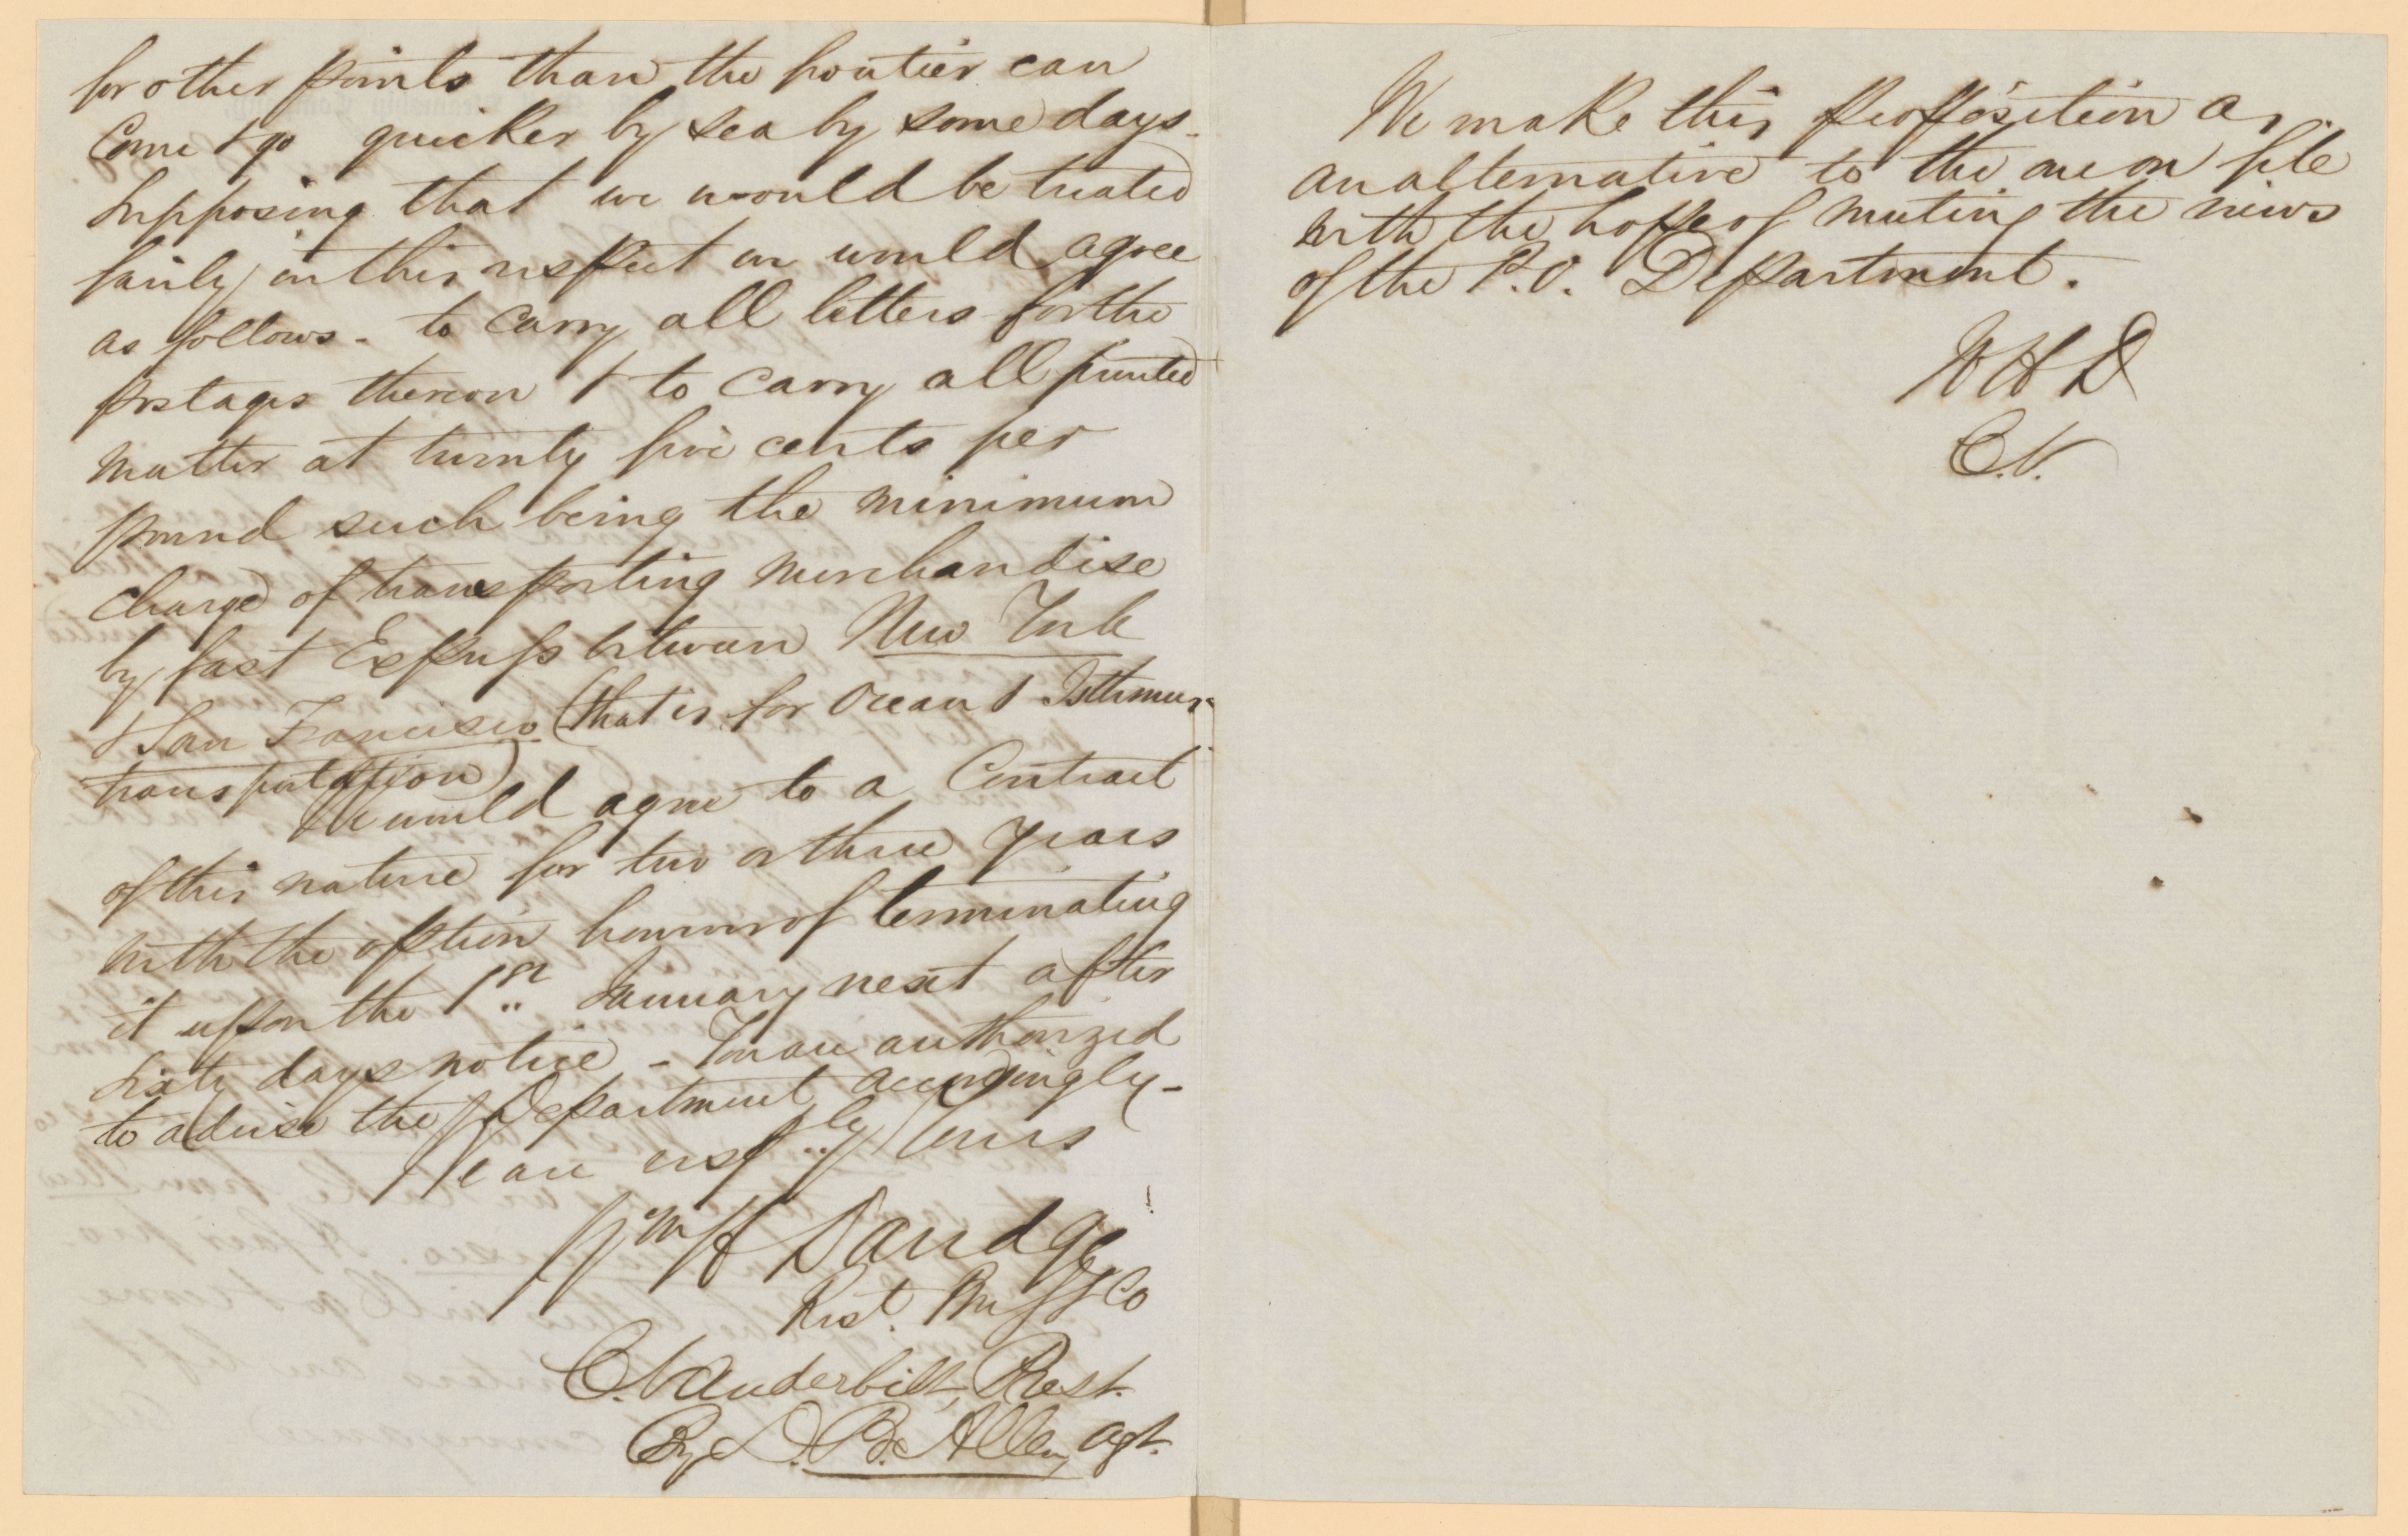 for other points than the frontier can
Come & go quicker by sea by some days-
Supposing that we would be treated
fairly in this respect we would agree
as follows - to carry all letters for the
postages thereon & to carry all printed
matter at twenty five cents per
pound such being the minimum
charge of transporting merchandise
by fast Express between New York
& San Francisco (that is for Ocean & Isthmus
transportation)
We would agree to a Contract
of this nature for two or three years
with the option however of terminating
it upon the 1st January next after
sixty days notice - You are authorized
to advise the Department accordingly -
We are resply Yours
Wm H Davidge
Prest. P M S S Co
C. Vanderbilt, Prest.
By D. B. Allen, agt.
We make this proposition as
an alternative to the one on file
with the hope of meeting the views
of the P.O. Department.
W H D
C.V.